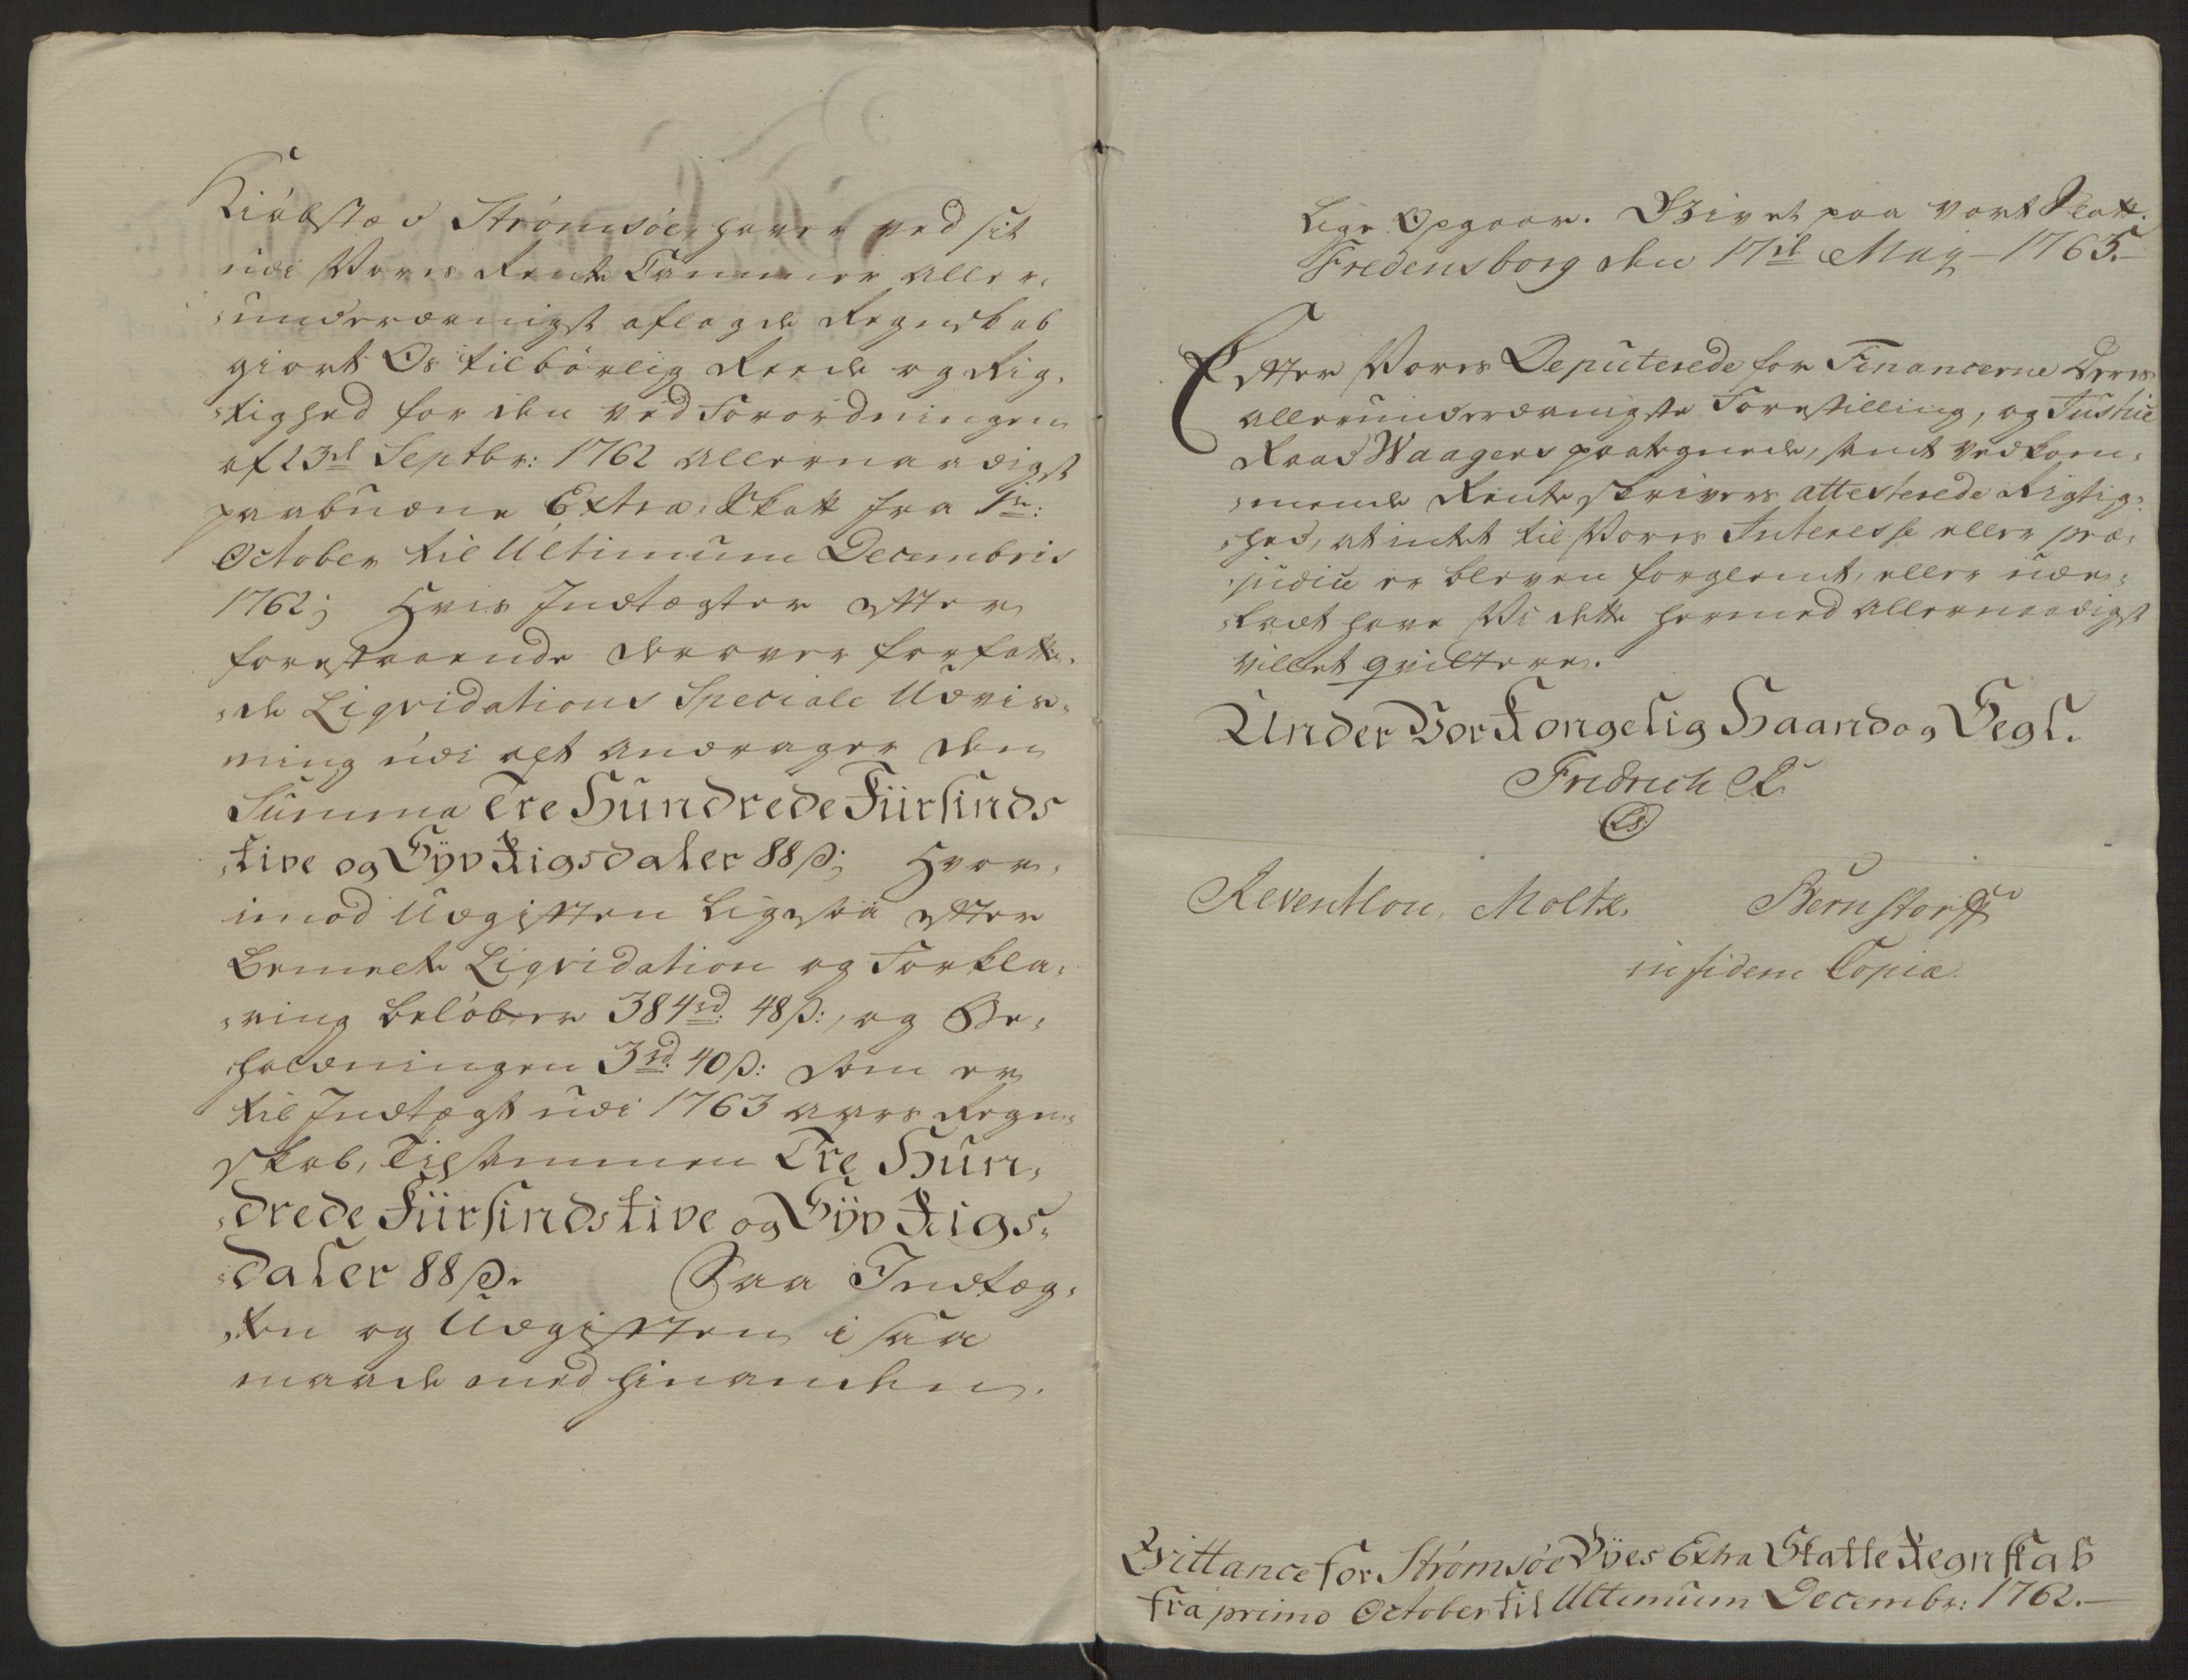 Kiøbstæd Strømsøe, haver ved sit
udi Vores Rente Cammer aller-
underdanigst aflagde Regnskab
giort Os tilbørlig Reede og Rig-
tighed for den ved Forordningen
af 23de Septbr: 1762 allernaadigst
paabudne Extra Skatt fra 1te:
October til Ultimum Decembris
1762; Hvis Indtægter efter
forestaaende derover forfatte-
de Liqvidations Speciale Udvis-
ning udi alt andrager den
Summa Tre Hundrede Fiirsinds
tive og Syv Rigsdaler 88 ß; Hvor-
imod Udgiften ligesaa efter
bemelte Liqvidation og Forkla-
ring beløber 384 rd: 48 ß:, og Be-
holdningen 3 rd: 40 ß: som er
til Indtægt udi 1763 aars Regn-
skab, Tilsammen Tre Hun-
drede Fiirsindstive og Syv Rigs-
daler 88 ß. Saa Indtæg-
ten og Udgiften i saa
maade med hinanden
lige Opgaar. Givet paa vort Slott
Fredensborg den 17de May 1765.
Efter Vores Deputerede for Financerne deres
allerunderdanigste Forestilling, og Justice
Raad Waagers paategnede, samt vedkom-
mende Renteskrivers attesterede Rigtig-
hed, at intet til Vores Interesse eller præ-
judice er bleven forglemt, eller ude-
ladt have Vi dette hermed allernaadigst
villet qvittere.
Under Vor Kongelig Haand og Segl.
Fridrich R.
LS:
Reventlou, Moltke, Bernstorff
in fidem Copiæ
Qvittance for Strømsøe Byes Extra Skatte Regnskab
fra primo October til Ultimum Decembr: 1762.